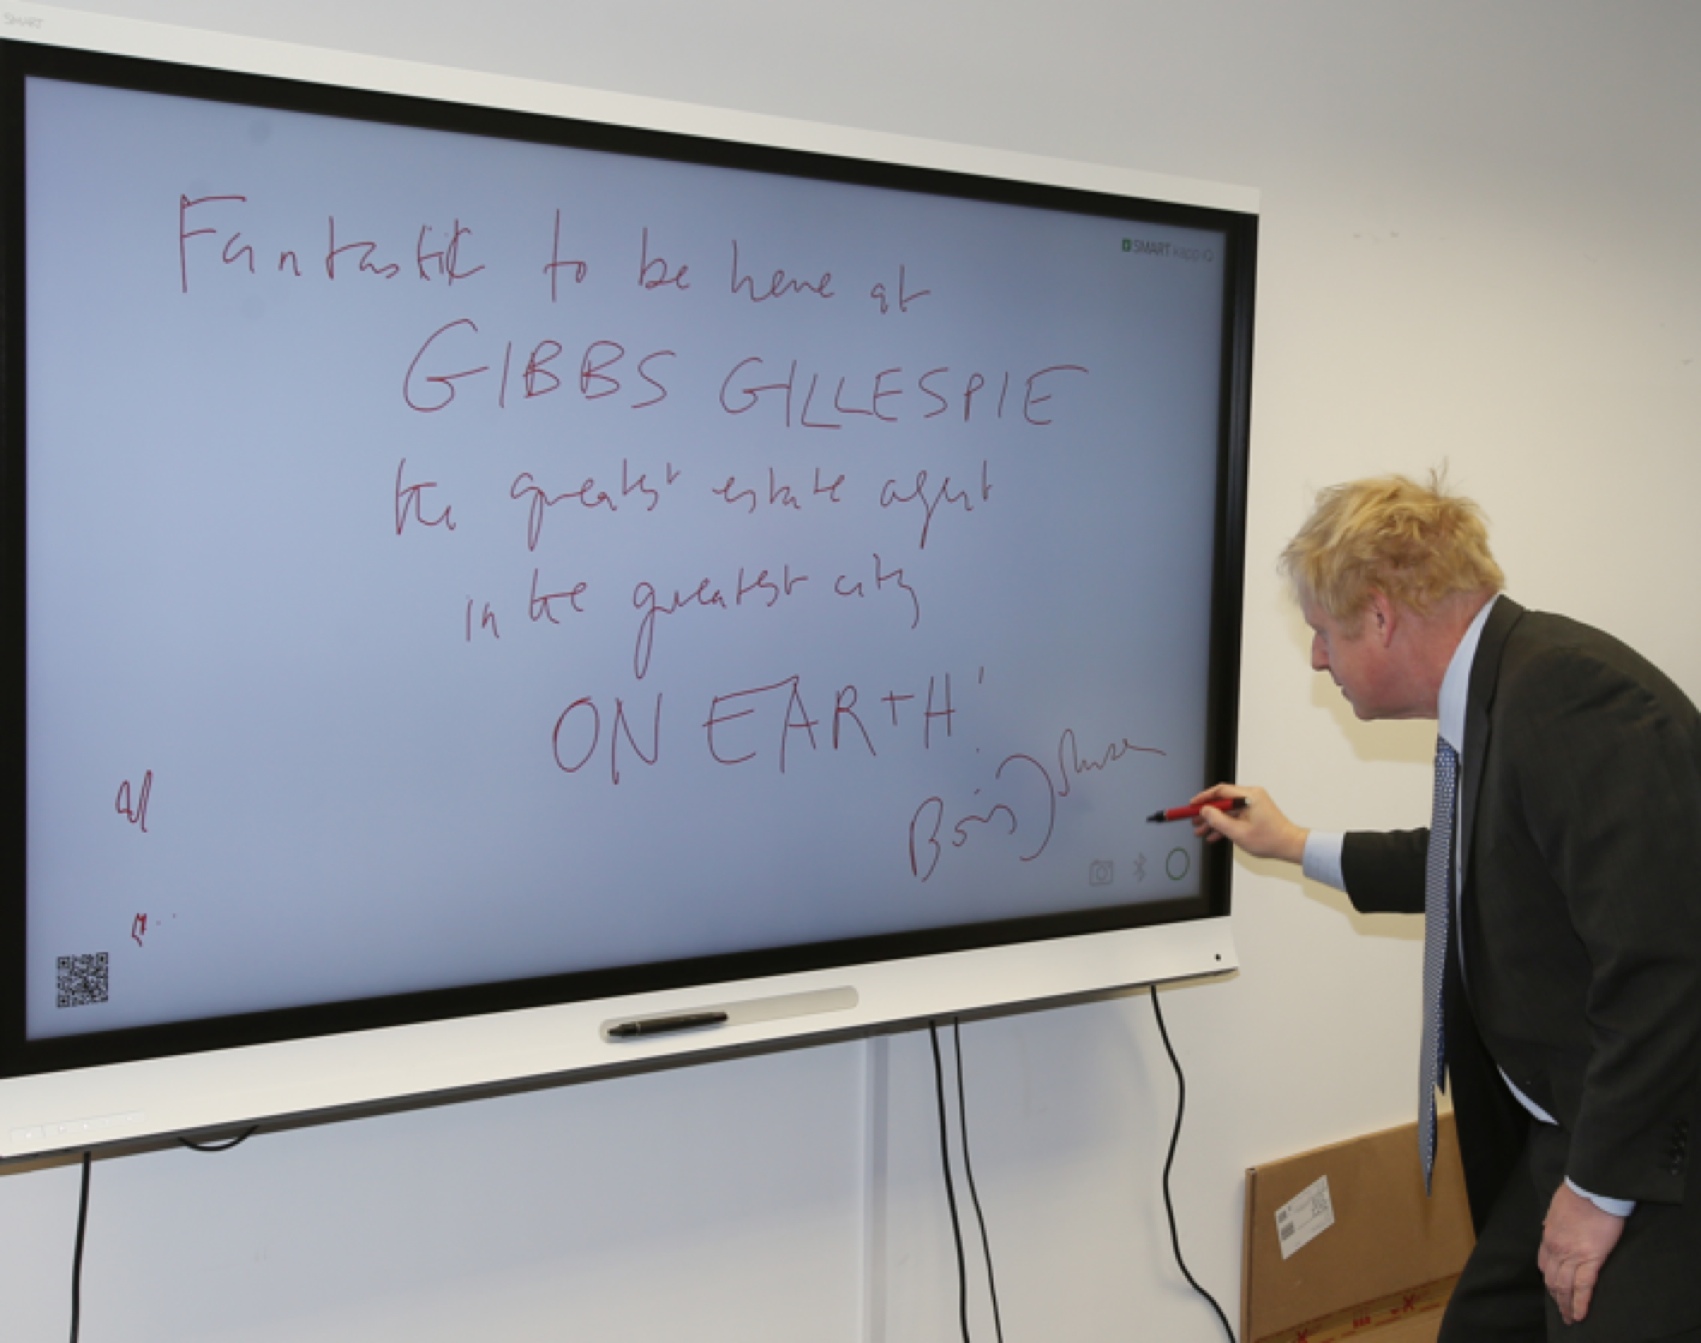 SMART
SMART kapp iQ
Fantastic to be here at
GIBBS GILLESPIE
the greatest estate agent
in the greatest city
ON EARTH!
Boris Johnson